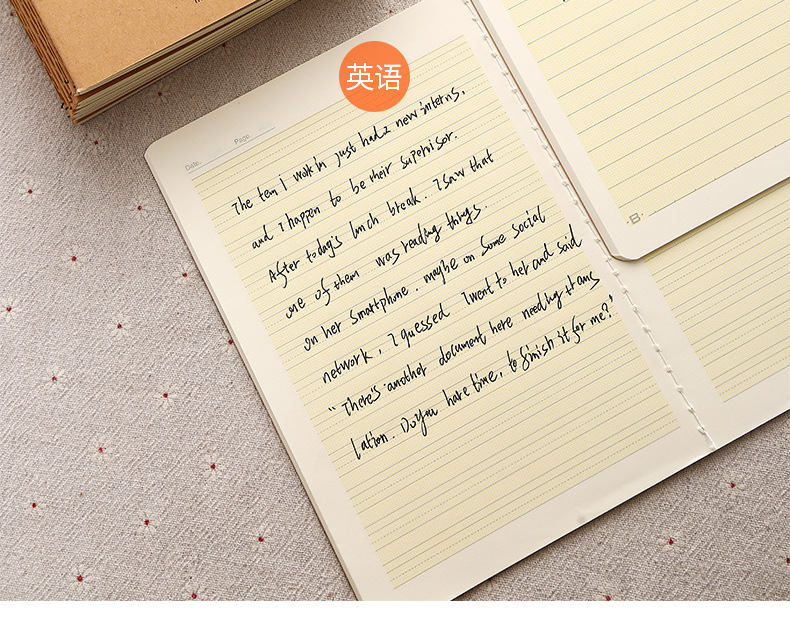 英语
Date. Page.
The tem I work in just had 2 new interns,
and I happen to be their supervisor.
After today's lunch break. I saw that
one of them was reading things
on her smartphone. maybe on some social
network, I guessed. I went to her and said
"There's another document here needing trans
lation. Do you have time, to finish it for me?"
B